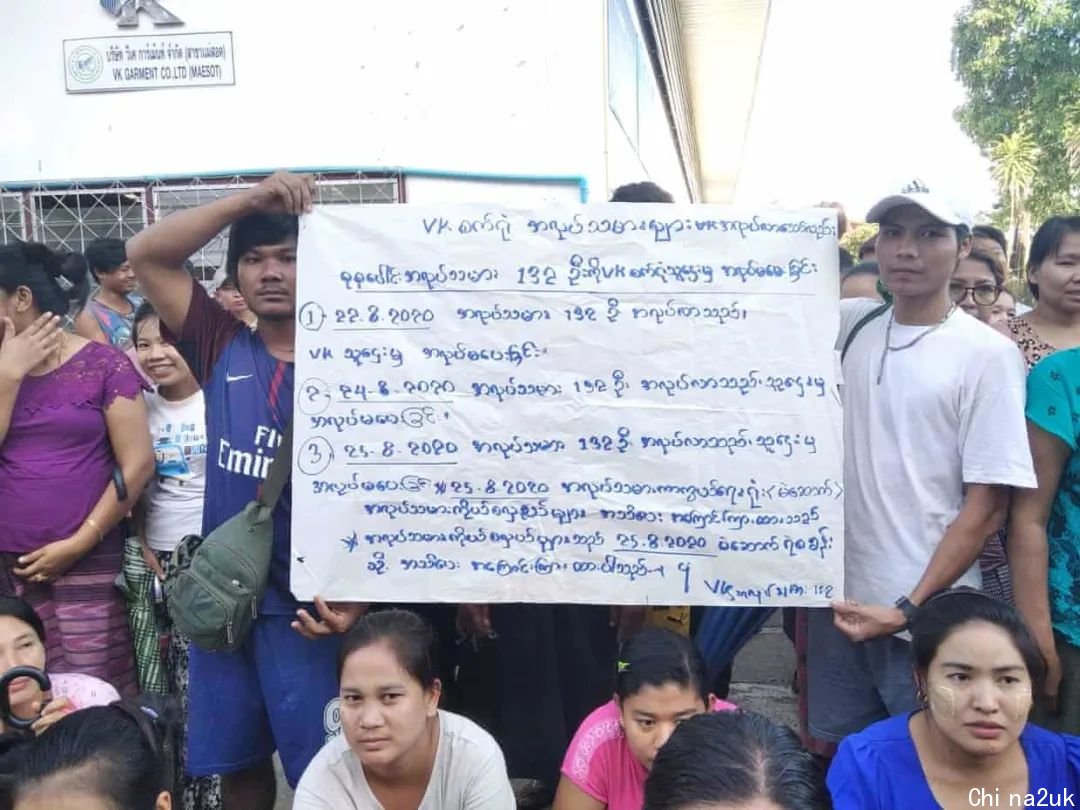 บริษัท วีเค การ์เม้นท์ จำกัด (สาขาแม่สอด)
VK GARMENT CO.,LTD (MAESOT)
VK စက်ရုံ အလုပ်သမားများ အလုပ်လာသော်လည်း
စုစုပေါင်း အလုပ်သမား 132 ဦးကို VK စက်ရုံသူဌေးမှ အလုပ်မပေးခြင်း
① 22.8.2020 အလုပ်သမား 132 ဦး အလုပ်လာသည်၊
VK သူဌေးမှ အလုပ်မပေးခြင်း။
2. 24.8.2020 အလုပ်သမား 132 ဦး အလုပ်လာသည်၊ သူဌေးမှ
အလုပ်မပေးခြင်း။
③ 25.8.2020 အလုပ်သမား 132 ဦး အလုပ်လာသည်၊ သူဌေးမှ
အလုပ်မပေးခြင်း 25.8.2020 အလုပ်သမားကာကွယ်ရေးရုံး (မဲဆောက်)
အလုပ်သမားကိုယ်စားလှယ်များ အသိပေး အကြောင်းကြားထားသည်
* အလုပ်သမားကိုယ်စားလှယ်များသည် 25.8.2020 မဲဆောက် ရဲစခန်း
သို့ အသိပေး အကြောင်းကြားထားပါသည်။
VK 132
Fly
Emir
Chi na2uk